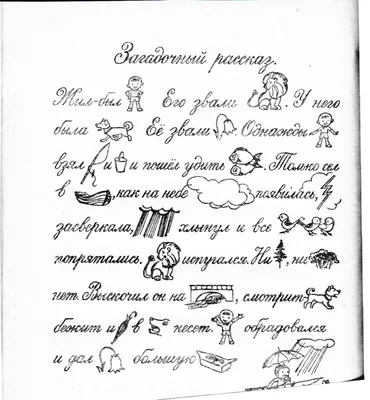 Загадочный рассказ.
Жил-был Его звали . У него
была Её звали . Однажды
взял и и пошёл удить . Только сел
в , как на небе появилась,
засверкала, хлынул и все
попрятались. испугался. Ни , ни
нет. Выскочил он на , смотрит
бежит и в несет. обрадовался
и дал большую